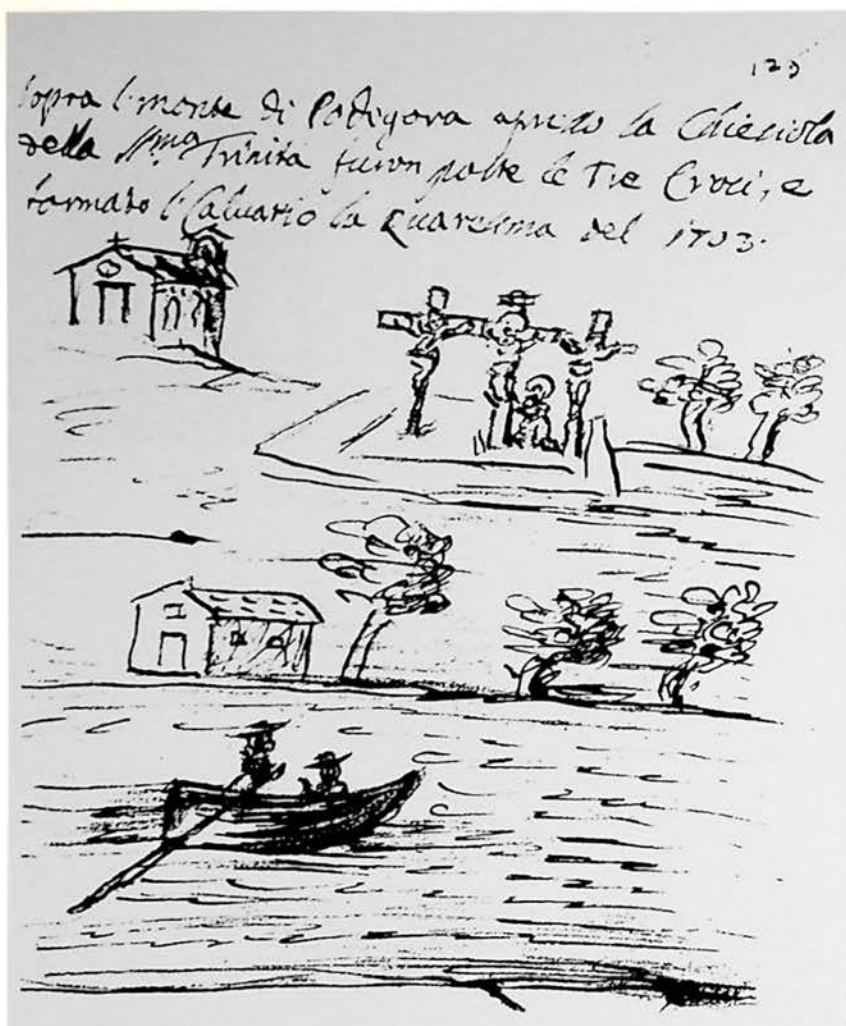 123
sopra l monte di Podigora apresso la Chiesiola
della Sma Trinità furon poste le Tre Croci, e
formato l Caluario la Quaresima del 1703.